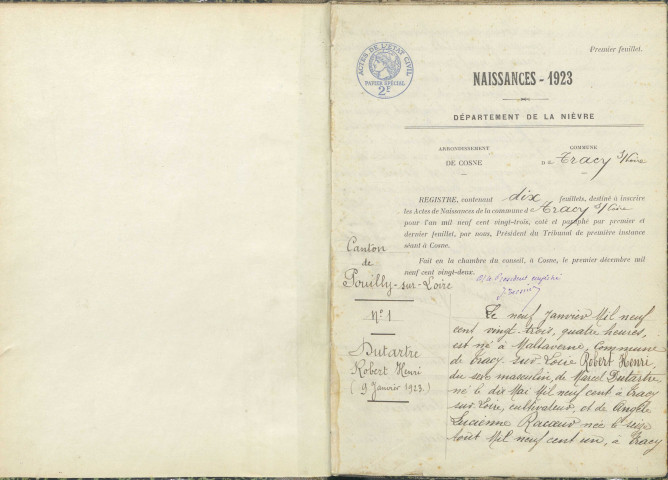 Premier feuillet.
ACTES DE L'ÉTAT CIVIL
PAPIER SPÉCIAL
2F
NAISSANCES - 1923
DÉPARTEMENT DE LA NIÈVRE
ARRONDISSEMENT
DE COSNE
COMMUNE
DE Tracy s/Loire
REGISTRE, contenant dix feuillets, destiné à inscrire
les Actes de Naissances de la commune d e Tracy s/Loire
pour l'an mil neuf cent vingt-trois, coté et paraphé par premier et
dernier feuillet, par nous, Président du Tribunal de première instance
séant à Cosne.
Fait en la chambre du conseil, à Cosne, le premier décembre mil
neuf cent vingt-deux.
Le Président
Canton
de
Pouilly-sur-Loire
N° 1
Dutartre
Robert Henri
(9 Janvier 1923.)
Le neuf Janvier Mil neuf
cent vingt-trois, quatre heures,
est né à Maltaverne, Commune
de Tracy sur Loire Robert Henri,
du sexe masculin, de Marcel Dutartre
né le dix Mai Mil neuf cent à Tracy
sur Loire, cultivateur, et de Angèle
Lucienne Racœur née le seize
Août Mil neuf cent un, à Tracy